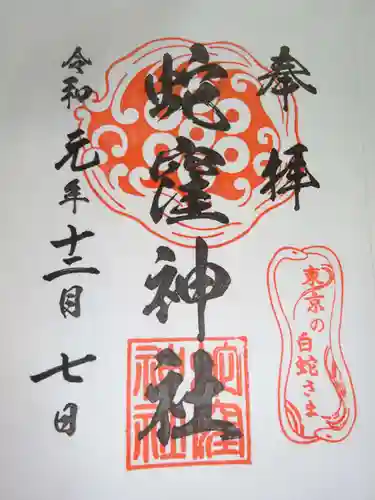 奉拝
東京の
白蛇さま
蛇窪神社
蛇窪
神社
令和元年十二月七日